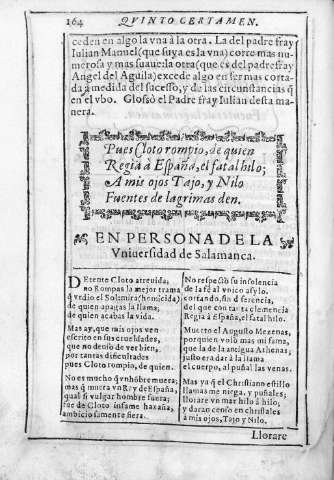 164 QVINTO CERTAMEN.
ceden en algo la vna à la otra. La del padre fray
Iulian Manuel (que suya es la vna) corre mas nu-
merosa y mas suaue: la otra (que es del padre fray
Angel del Aguila) excede algo en ser mas corta-
da à medida del sucesso, y de las circunstancias q̃
en el vbo. Glosò el Padre fray Iulian desta ma-
nera.
Pues Cloto rompio, de quien
Regia à España, el fatal hilo;
A mis ojos Tajo, y Nilo
Fuentes de lagrimas den.
EN PERSONA DE LA
Vniuersidad de Salamanca.
DEtente Cloto atreuida;
no Rompas la mejor trama
q̃ vrdio el Sol; mira (homicida)
de quien apagas la llama;
de quien acabas la vida.
Mas ay, que mis ojos ven
escrito en sus crueldades,
que no deuio de ver bien,
por tantas dificultades
pues Cloto rompio, de quien.
No es mucho q̃ vn hõbre muera;
mas q̃ muera vn Rey de España,
qual si vulgar hombre fuera;
fue de Cloto infame hazaña,
ambiciosamente fiera.
No respectò su insolencia
de la fè al vnico asylo,
cortando, sin diferencia,
del que con tanta clemencia
Regia à España, el fatal hilo.
Muerto el Augusto Mezenas,
por quien volò mas mi fama,
que la de la antigua Athenas,
justo era dar à la llama
el cuerpo, al puñal las venas.
Mas ya q̃ el Christiano estilo
llamas me niega, y puñales;
llorare vn mar hilo à hilo,
y daran censo en christales
à mis ojos, Tajo, y Nilo.
Llorare